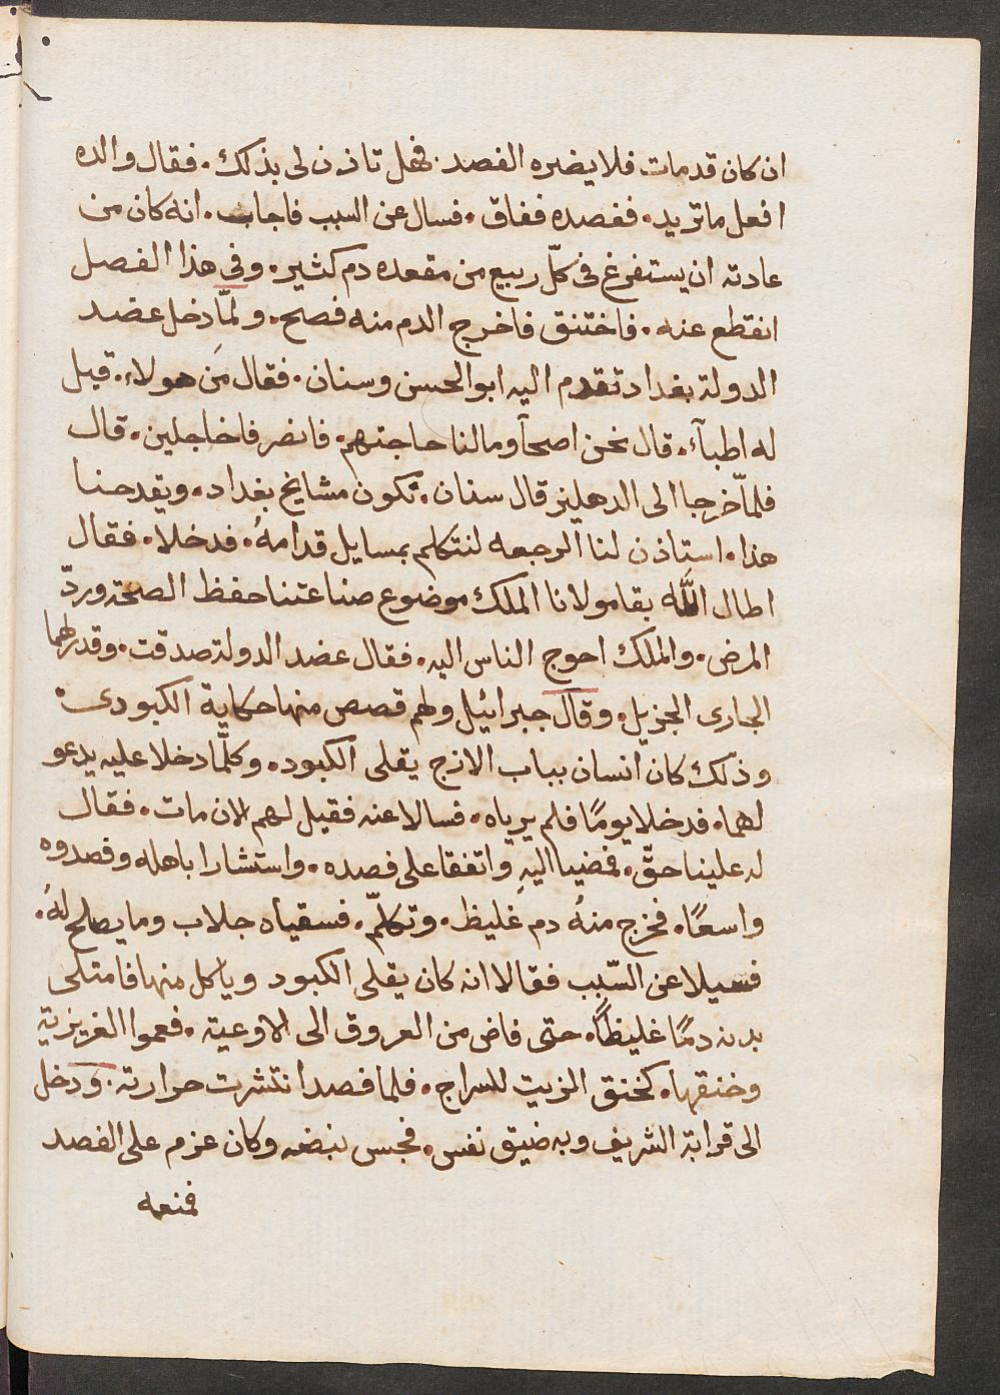 ان كان قد مات فلا يضره الفصد. فهل تاذن لى بذلك. فقال والده
افعل ما تريد. ففصده ففاق. فسال عن السبب فاجاب. انه كان من
عادته ان يستفرغ فى كلّ ربيع من مقعده دم كثير. وفي هذا الفصل
انقطع عنه. فاختنق فاخرج الدم منه فصح. ولمّا دخل عضد
الدولة بغداد تقدم اليه ابو الحسن وسنان. فقال مَن هولاء. قيل
له اطبآء. قال نحن اصحآ وما لنا حاجة بهم. فانصرفا خاجلين. قال
فلمّا خرجا الى الدهليز قال سنان. نكون مشايخ بغداد. ويقدحنا
هذا. استاذن لنا الرجعه لنتكلم بمسايل قدامهُ. فدخلا. فقال
اطال اللّه بقا مولانا الملك موضوع صناعتنا حفظ الصحة وردّ
المرض. والملك احوج الناس اليه. فقال عضد الدولة صدقت. وقدر لهما
الجارى الجزيل. وقال جبرائيل ولهم قصص منها حكاية الكبودى.
وذلك كان انسان بباب الازج يقلى الكبود. وكلّما دخلا عليه يدعو
لهما. فدخلا يومًا فلم يرياه. فسالا عنه فقيل لهم الان مات. فقال
له علينا حقّ. فمضيا اليهِ واتفقا على فصده. واستشارا باهله وفصدوه
واسعًا. فخرج منهُ دم غليظ. وتكلّم. فسقياه جلاب وما يصلح لهُ.
فسيلا عن السّبب فقالا انه كان يقلى الكبود وياكل منها فامتلى
بدنه دمًا غليظًا. حتى فاض من العروق الى الاوعية. فعموا الغريزية
وخنقها. كخنق الزيت للسراج. فلما فصد انتشرت حرارته. ودخل
الى قرابة الشريف وبه ضيق نفس. فجس نبضه وكان عزم على الفصد
فمنعه